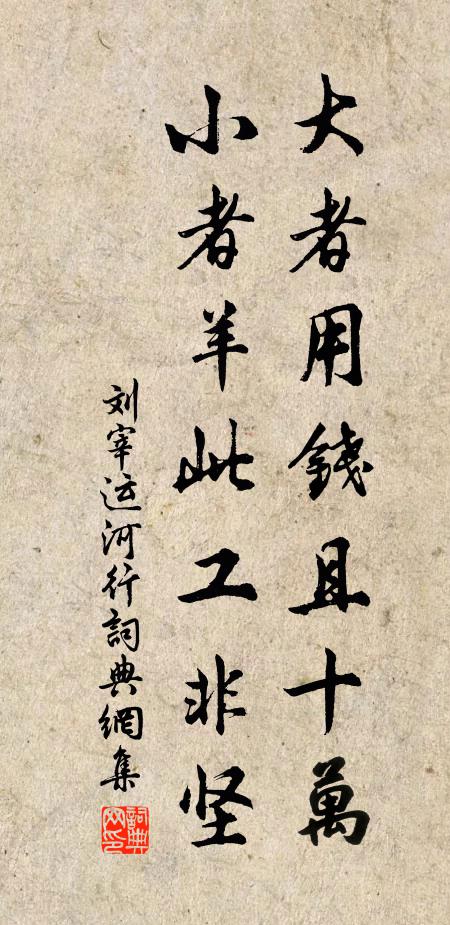 大者用錢且十萬
小者羊此工非坚
刘宰运河行詞典網集
詞典網印